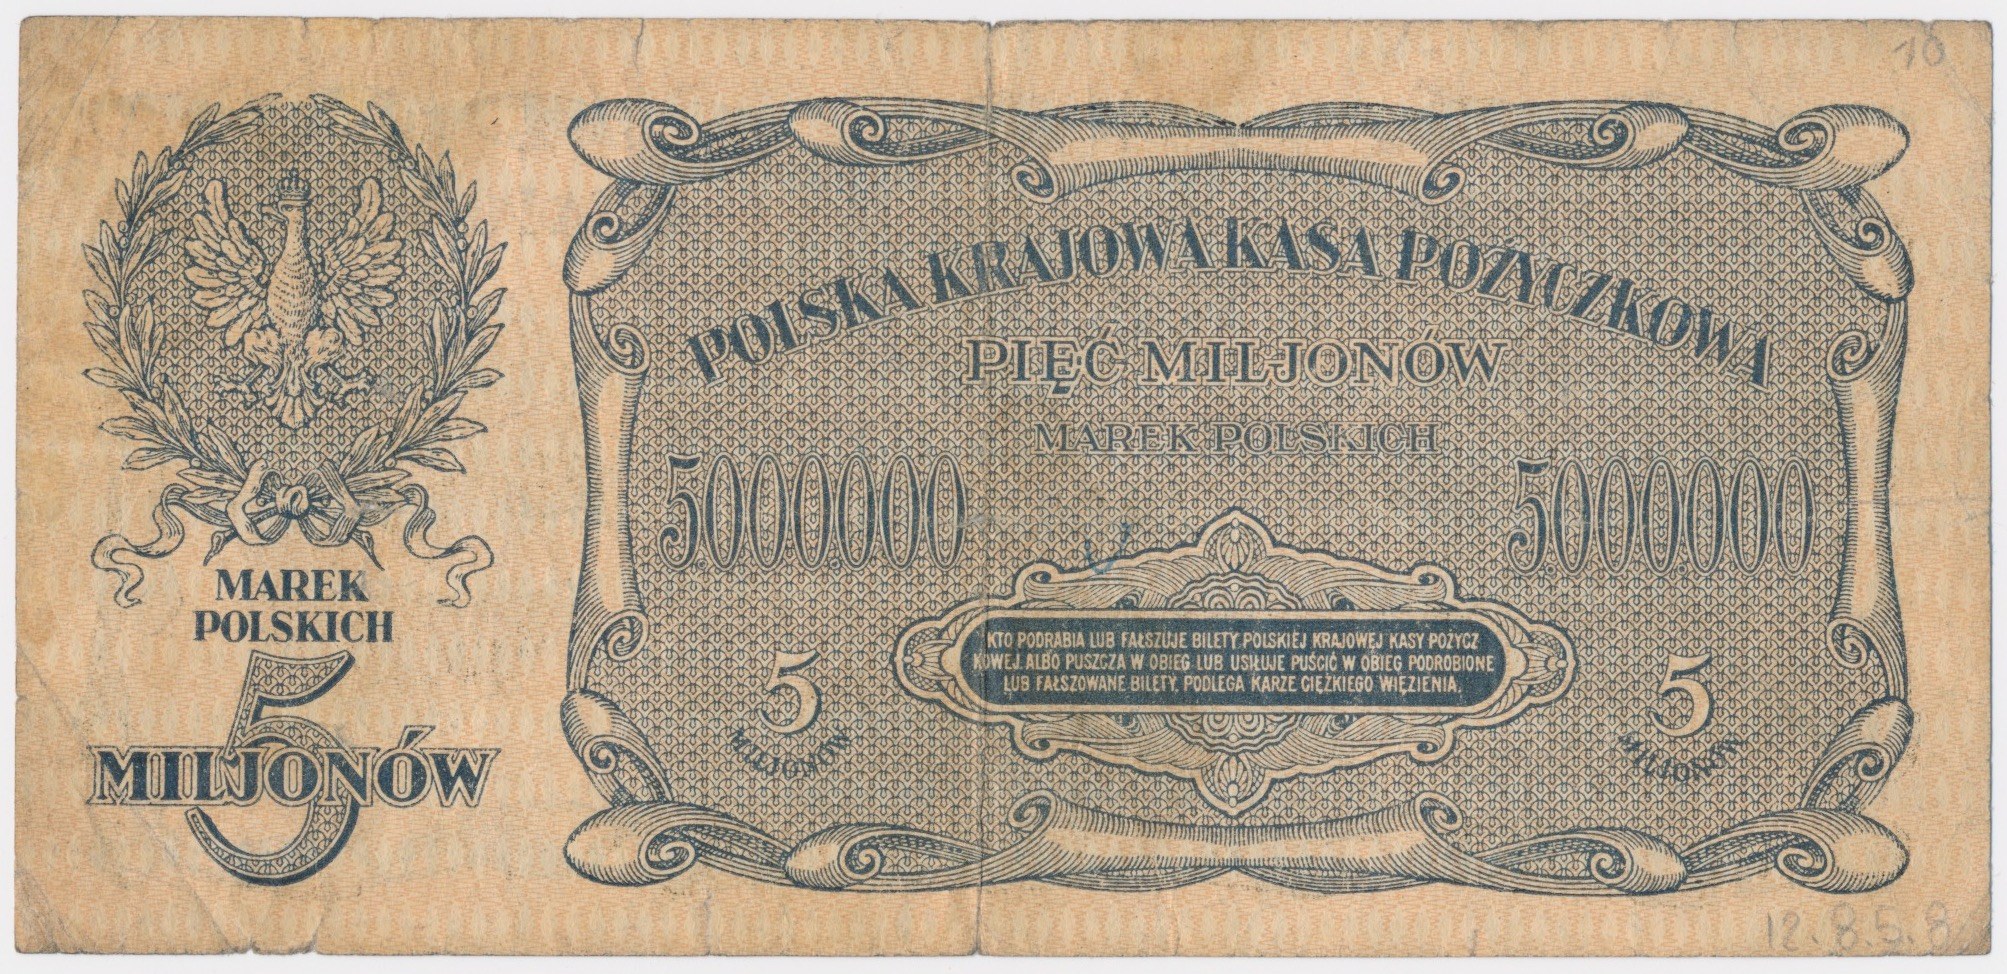 10
POLSKA KRAJOWA KASA POŻYCZKOWA
PIĘĆ MILJONÓW
MAREK POLSKICH
5.000.000
5.000.000
MAREK
POLSKICH
5
MILJONÓW
KTO PODRABIA LUB FAŁSZUJE BILETY POLSKIEJ KRAJOWEJ KASY POŻYCZ
KOWEJ ALBO PUSZCZA W OBIEG LUB USIŁUJE PUŚCIĆ W OBIEG PODROBIONE
LUB FAŁSZOWANE BILETY, PODLEGA KARZE CIĘŻKIEGO WIĘZIENIA.
5
MILJONÓW
5
MILJONÓW
12.8.5.8